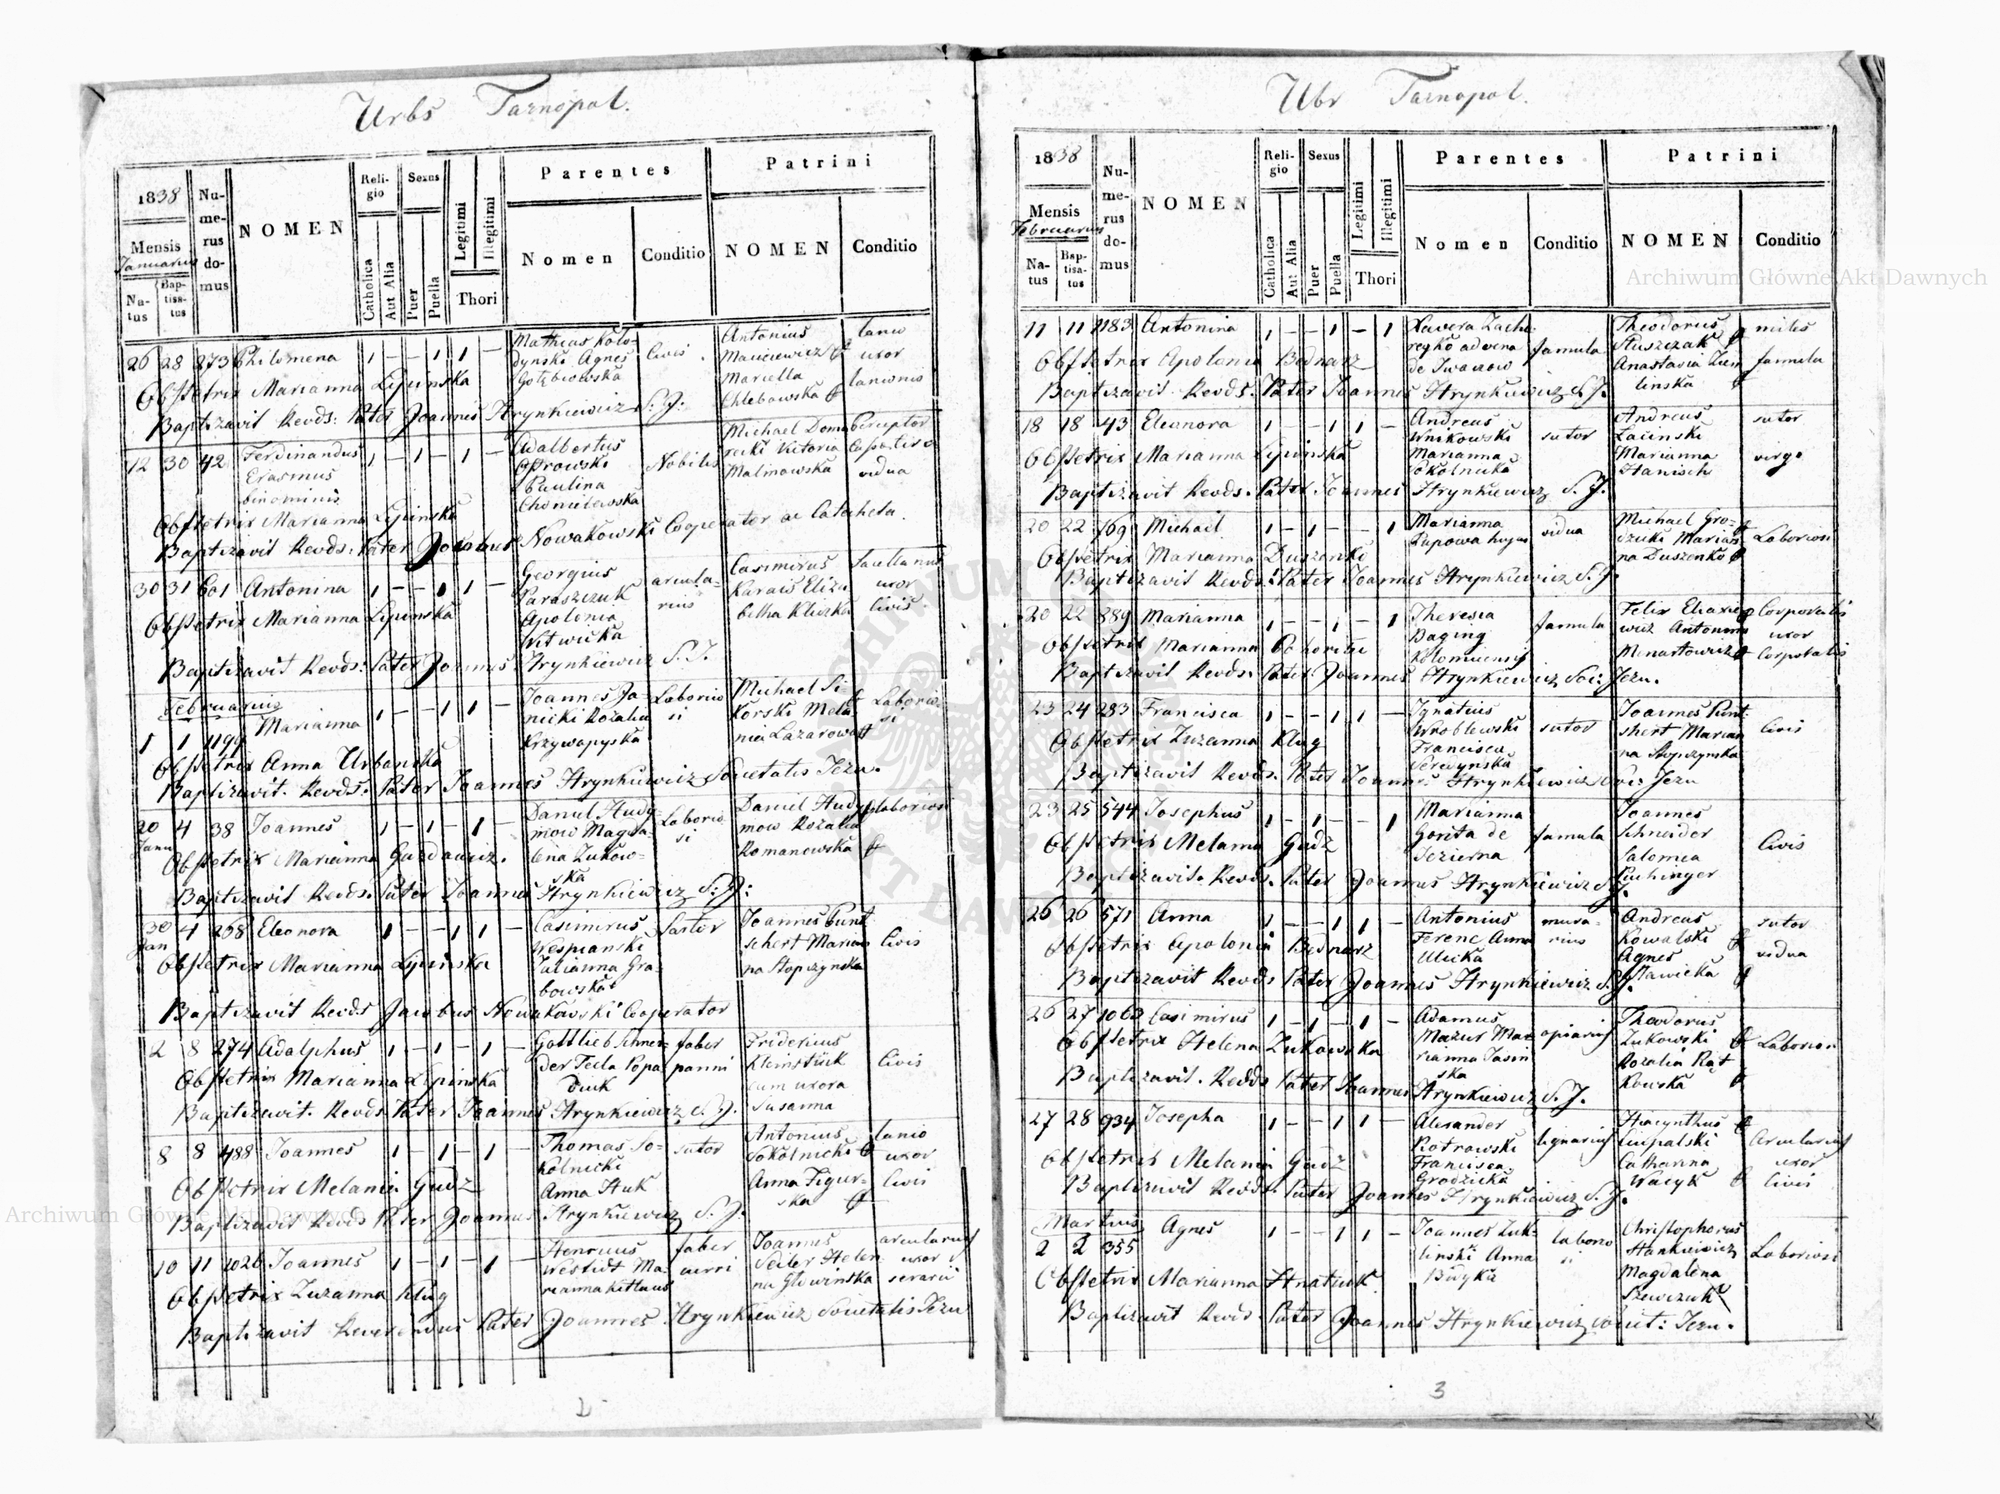 Urbs Tarnopol.
1838
Mensis
Januarius
Natus
Baptisatus
Numerus domus
NOMEN
Religio
Catholica
Aut Alia
Sexus
Puer
Puella
Legitimi
Illegitimi
Thori
Parentes
Nomen
Conditio
Patrini
NOMEN
Conditio
26 28 273 Philomena 1 – – 1 1 –
Obstetrix Marianna Lipinska
Baptizavit Revds: Pater Joannes Hrynkiewicz S. J:
12 30 42 Ferdinandus Erasmus binominis 1 – 1 – 1 – Adalbertus Paulina Nobilis
Malinowska vidua
Obstetrix Marianna Lipinska
Baptizavit Revds: Pater Nowakowski Cooperator ac Catecheta.
30 31 601 Antonina 1 – – 1 1 – Georgius Paraszczuk Apolonia Witwicka arcularius Casimirus
Obstetrix Marianna Lipinska
Baptizavit Revds: Pater Joannes Hrynkiewicz S. J.
Februarius
1 1 1199 Marianna 1 – – 1 1 – Joannes Janicki Rozalia Krzywopyska Laboriosi Michael Sikorski Laboriosi
Obstetrix Anna Urbanska
Baptizavit. Revds: Pater Joannes Hrynkiewicz Societatis Jezu.
20 Janu 4 38 Joannes 1 – 1 – 1 – Daniel Hudymow Magdalena Zukowska Laboriosi Daniel Hudymow Rozalia Romanowska laboriosi
Obstetrix Marianna
Baptizavit Revds. Pater Joannes Hrynkiewicz S. J:
30 Jan 4 268 Eleonora 1 – – 1 1 – Casimirus Wespianski Julianna Grabowska Sartor Joannes Puntschert Marianna Stopczynska Civis
Obstetrix Marianna Lipinska
Baptizavit Revds Jacobus Nowakowski Cooperator
2 8 274 Adolphus 1 – 1 – 1 – Gottlieb Schneider Tecla faber panni Fridericus Kleinstück cum uxora Susanna Civis
Obstetrix Marianna Lipinska
Baptizavit. Revds Pater Joannes Hrynkiewicz S. J.
8 8 488 Joannes 1 – 1 – 1 – Thomas Sokolnicki Anna Huk sutor Antonius Sokolnicki Anna Figurska lanio uxor Civis
Obstetrix Melania Gudz
Baptizavit Revds Pater Joannes Hrynkiewicz S. J.
10 11 1026 Joannes 1 – 1 – 1 – Henricus faber curri Joannes Seiler arcularius uxor
Obstetrix Zuzanna Klug
Baptizavit Reverendus Pater Joannes Hrynkiewicz Societatis Jezu
2
Ubr Tarnopol.
1838
Mensis
Februarius
Natus
Baptisatus
Numerus domus
NOMEN
Religio
Catholica
Aut Alia
Sexus
Puer
Puella
Legitimi
Illegitimi
Thori
Parentes
Nomen
Conditio
Patrini
NOMEN
Conditio
11 11 1183 Antonina 1 – – 1 – 1 famula Theodorus Anastasia miles famula
Obstetrix Apolonia Bednarz
Baptizavit Revds. Pater Joannes Hrynkiewicz S. J.
18 18 43 Eleonora 1 – – 1 1 – Andreas Wnikowski Marianna Sokolnicka sutor Andreas Marianna Hanisch sutor virgo
Obstetrix Marianna Lipinska
Baptizavit Revds. Pater Joannes Hrynkiewicz S. J.
20 22 169 Michael 1 – 1 – – 1 Marianna vidua Michael Marianna Duszenko Laboriosi
Obstetrix Marianna Duszenko
Baptizavit Revds: Pater Joannes Hrynkiewicz S. J.
20 22 889 Marianna 1 – – 1 – 1 Theresia famula Felix Antonina Corporalis uxor Corporalis
Obstetrix Marianna
Baptizavit Revds. Pater Joannes Hrynkiewicz Soc: Jezu.
23 24 283 Francisca 1 – – 1 1 – Ignatius Wroblewski Francisca sutor Joannes Puntshert Marianna Stopczynska Civis
Obstetrix Zuzanna Klug
Baptizavit Revds. Pater Joannes Hrynkiewicz Soc: Jezu
23 25 544 Josephus 1 – 1 – – 1 Marianna Gorita de Jezierna famula Joannes Schneider Salomea Puchinger Civis
Obstetrix Melania Gudz
Baptizavit. Revds. Pater Joannes Hrynkiewicz S. J.
26 26 571 Anna 1 – – 1 1 – Antonius Ferenc Anna murarius Andreas Kowalski Agnes sutor vidua
Obstetrix Apolonia Bednarz
Baptizavit Revds Pater Joannes Hrynkiewicz S. J.
26 27 Casimirus 1 – 1 – 1 – Adamus Mazur Marianna Jasinska Theodorus Zukowski Rozalia Laboriosi
Obstetrix Helena Zukowska
Baptizavit. Revds Pater Joannes Hrynkiewicz S. J.
27 28 934 Josepha 1 – – 1 1 – Alexander Piotrowski Francisca Grodzicka lignarius Hiacynthus Catharina Arcularius uxor Civis
Obstetrix Melania Gudz
Baptizavit Revds. Pater Joannes Hrynkiewicz S. J.
Martius
2 2 355 Agnes 1 – – 1 1 – Joannes Anna laboriosi Christophorus Hankiewicz Magdalena Szewczuk Laboriosi
Obstetrix Marianna Hnatiuk
Baptizavit Revds. Pater Joannes Hrynkiewicz Societ: Jezu.
3
Archiwum Główne Akt Dawnych
Archiwum Główne Akt Dawnych